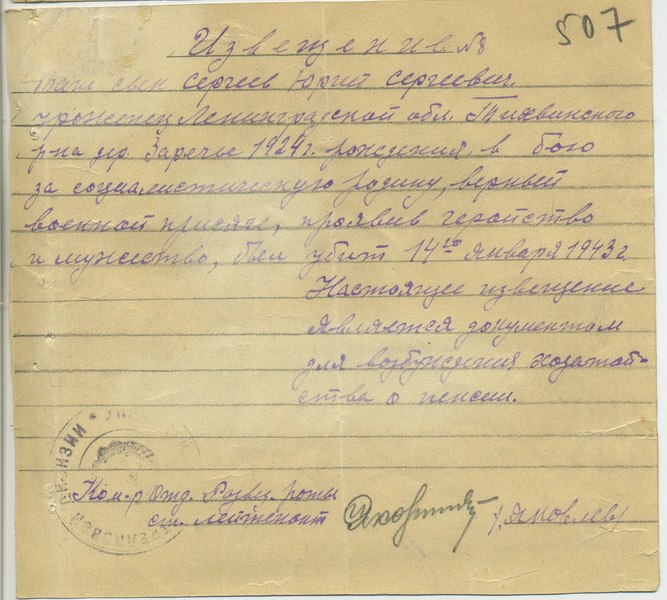 507
Извещение №8
Ваш сын Сергеев Юрий Сергеевич
уроженец Ленинградской обл. Тихвинского
р-на дер. Заречье 1924г. рождения, в бою
за социалистическую родину, верный
военной присяге, проявив геройство
и мужество, был убит 14го января 1943г.
Настоящее извещение
является документом
для возбуждения ходатай-
ства о пенсии.
СТРЕЛКОВАЯ ДИВИЗИИ *
Ком-р Отд. Развед. роты
ст. лейтенант
/Яковлев/